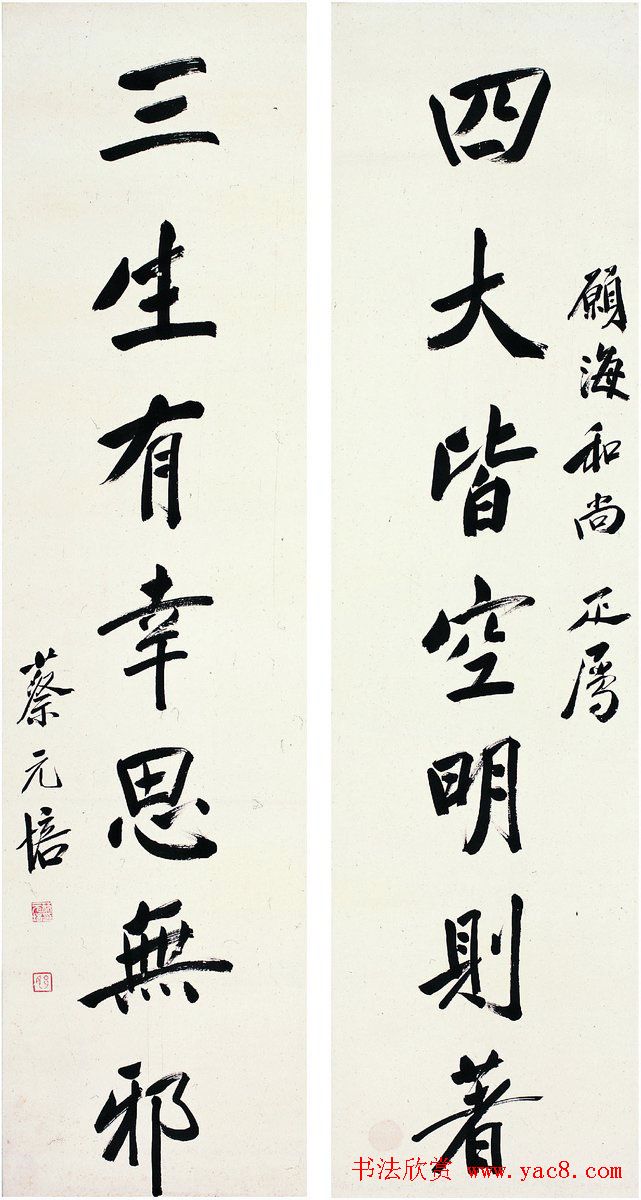 願海和尚 正属
四大皆空明則著
三生有幸思無邪
蔡元培
书法欣赏 www.yac8.com